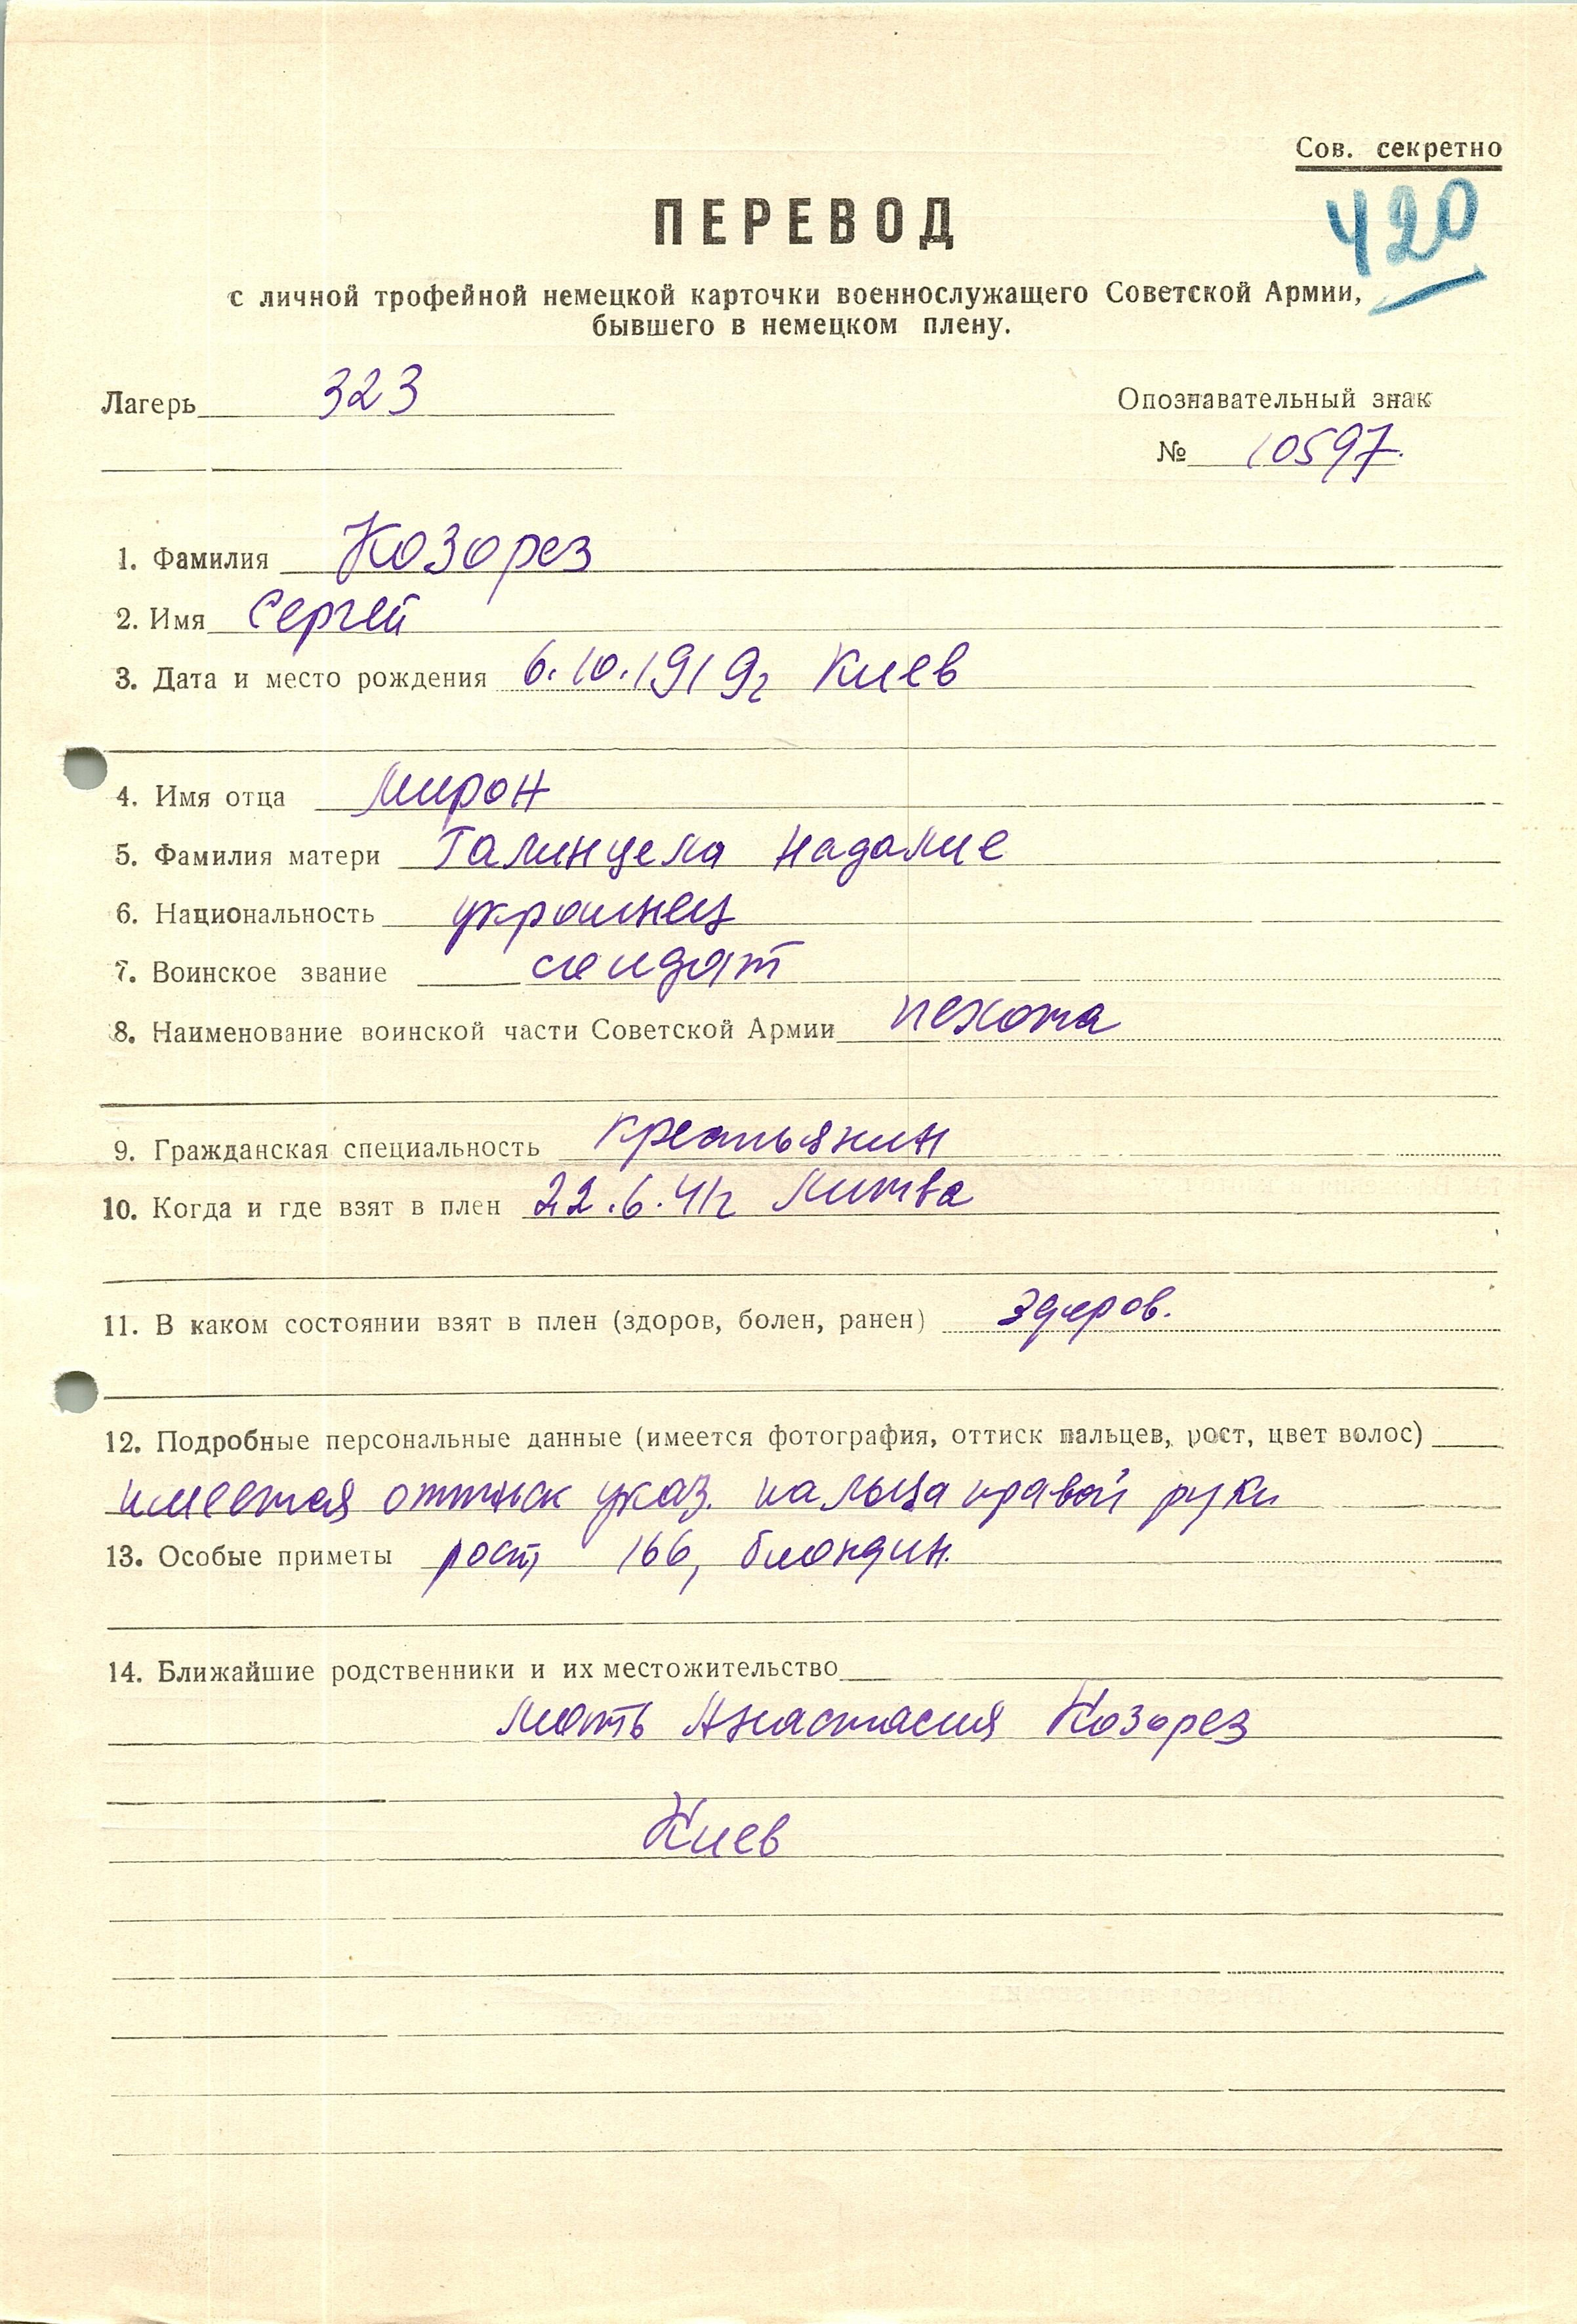 Сов. секретно
420
ПЕРЕВОД
с личной трофейной немецкой карточки военнослужащего Советской Армии,
бывшего в немецком плену.
Лагерь 323
Опознавательный знак
№ 10597.
1. Фамилия Козорез
2. Имя Сергей
3. Дата и место рождения 6.10.1919г Киев
4. Имя отца Мирон
5. Фамилия матери
6. Национальность украинец
7. Воинское звание солдат
8. Наименование воинской части Советской Армии пехота
9. Гражданская специальность крестьянин
10. Когда и где взят в плен 22.6.41г Литва
11. В каком состоянии взят в плен (здоров, болен, ранен) здоров.
12. Подробные персональные данные (имеется фотография, оттиск пальцев, рост, цвет волос)
имеется оттиск указ. пальца правой руки
13. Особые приметы рост 166, блондин.
14. Ближайшие родственники и их местожительство
мать Анастасия Козорез
Киев